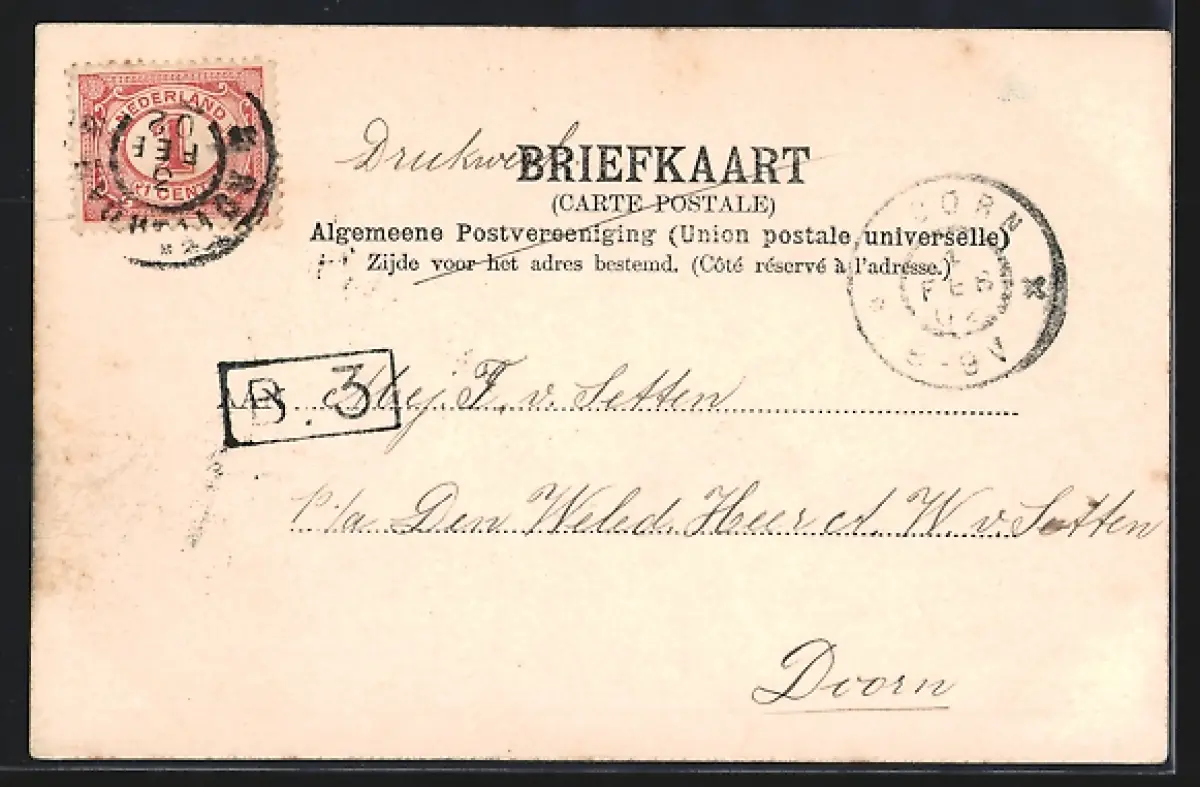 NEDERLAND
1
1 CENT
FEB
02
Drukwerk
BRIEFKAART
(CARTE POSTALE)
Algemeene Postvereeniging (Union postale universelle)
Zijde voor het adres bestemd. (Côté réservé à l'adresse.)
DOORN
FEB
02
8-9V
B. 3
AAN Mej. F. v. Setten
p/a Den Weled. Heer A. W. v. Setten
Doorn